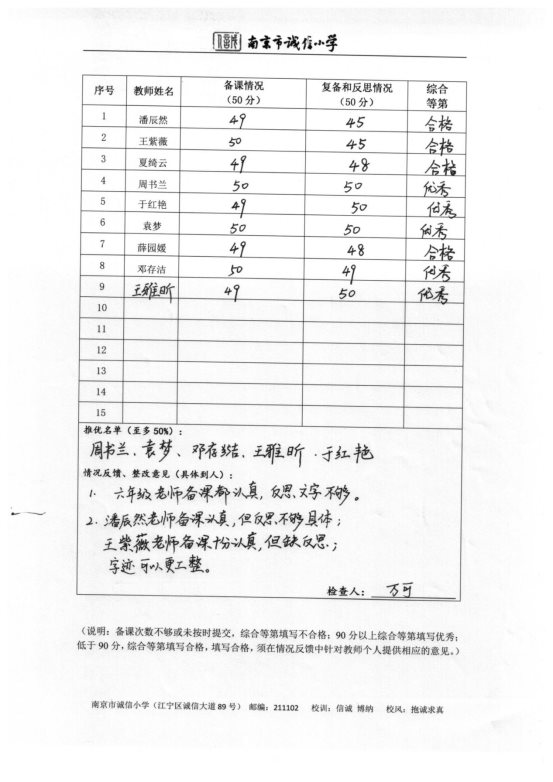 南京市诚信小学
序号 教师姓名 备课情况（50分） 复备和反思情况（50分） 综合等第
1 潘辰然 49 45 合格
2 王紫薇 50 45 合格
3 夏绮云 49 48 合格
4 周书兰 50 50 优秀
5 于红艳 49 50 优秀
6 袁梦 50 50 优秀
7 薛园媛 49 48 合格
8 邓存洁 50 49 优秀
9 王雅昕 49 50 优秀
10
11
12
13
14
15
推优名单（至多50%）：
周书兰、袁梦、邓存洁、王雅昕、于红艳
情况反馈、整改意见（具体到人）：
1. 六年级老师备课都认真，反思文字不够。
2. 潘辰然老师备课认真，但反思不够具体；
王紫薇老师备课十分认真，但缺反思；
字迹可以更工整。
检查人： 万可
（说明：备课次数不够或未按时提交，综合等第填写不合格；90分以上综合等第填写优秀；
低于90分，综合等第填写合格，填写合格，须在情况反馈中针对教师个人提供相应的意见。）
南京市诚信小学（江宁区诚信大道89号） 邮编：211102 校训：信诚 博纳 校风：抱诚求真